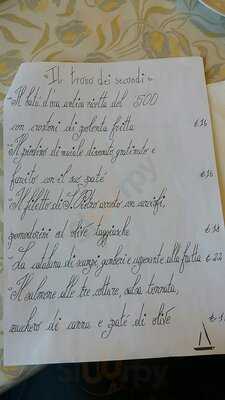 "Il trovo dei secondi"
"Il patè d'una antica ricetta del '500
con crostoni di polenta fritta € 16
"Il piedino di maiale disossato gratinato e
farcito con il suo patè € 16
"Il filetto di S. Pietro arrosto con carciofi,
pomodorini ed olive taggiasche € 18
"La catalana di scampi, gamberi e aragosta alla frutta € 22
"Il salmone alle tre cotture, salsa tonnata,
zucchero di canna e patè di olive